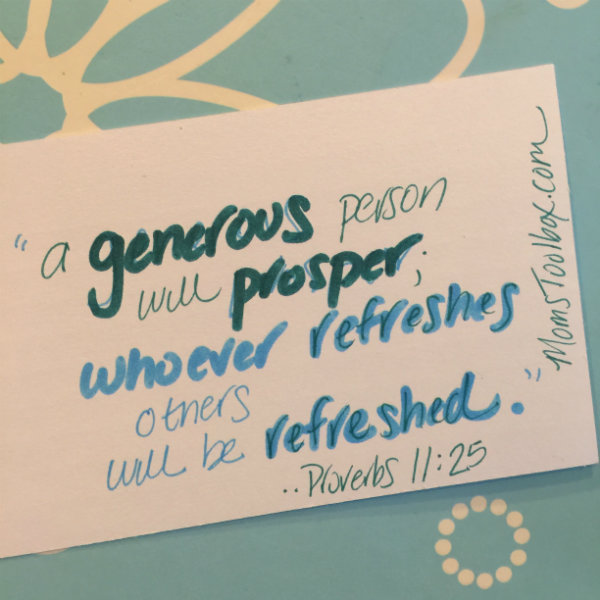 "a generous person
will prosper;
whoever refreshes
others
will be refreshed."
..Proverbs 11:25
MomsToolbox.com